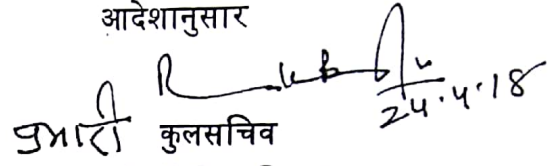 आदेशानुसार
24.4.18
प्रभारी कुलसचिव